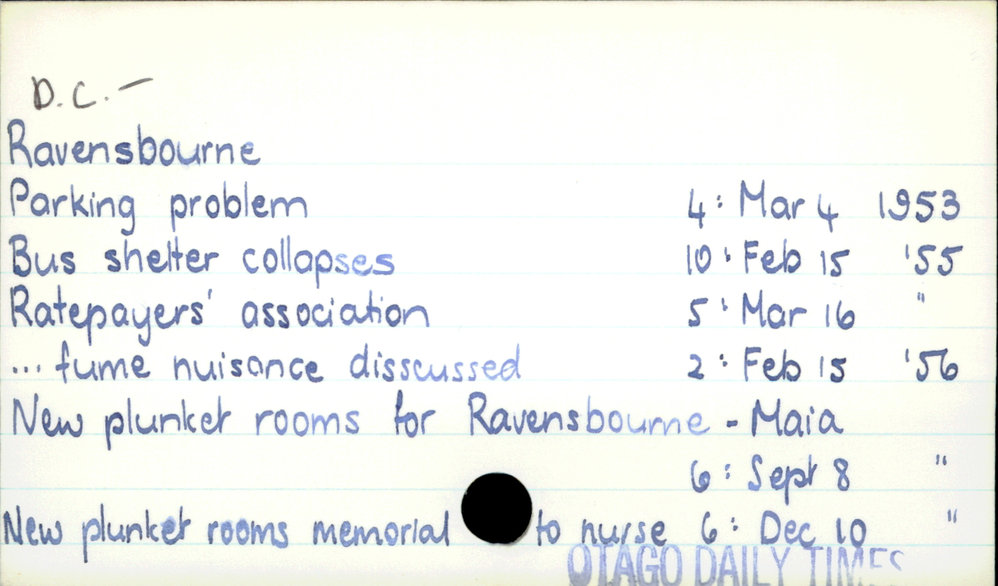 D.C. -
Ravensbourne
Parking problem 4: Mar 4 1953
Bus shelter collapses 10: Feb 15 '55
Ratepayers' association 5: Mar 16 "
... fume nuisance disscussed 2: Feb 15 '56
New plunket rooms for Ravensbourne - Maia
6: Sept 8 "
New plunket rooms memorial to nurse 6: Dec 10 "
OTAGO DAILY TIMES